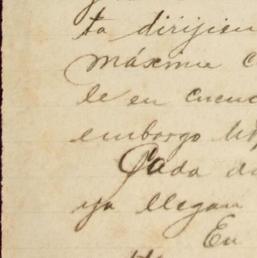 ta dirijien
máxime c
le en cuen
embargo
Cada d
ya llegan
En